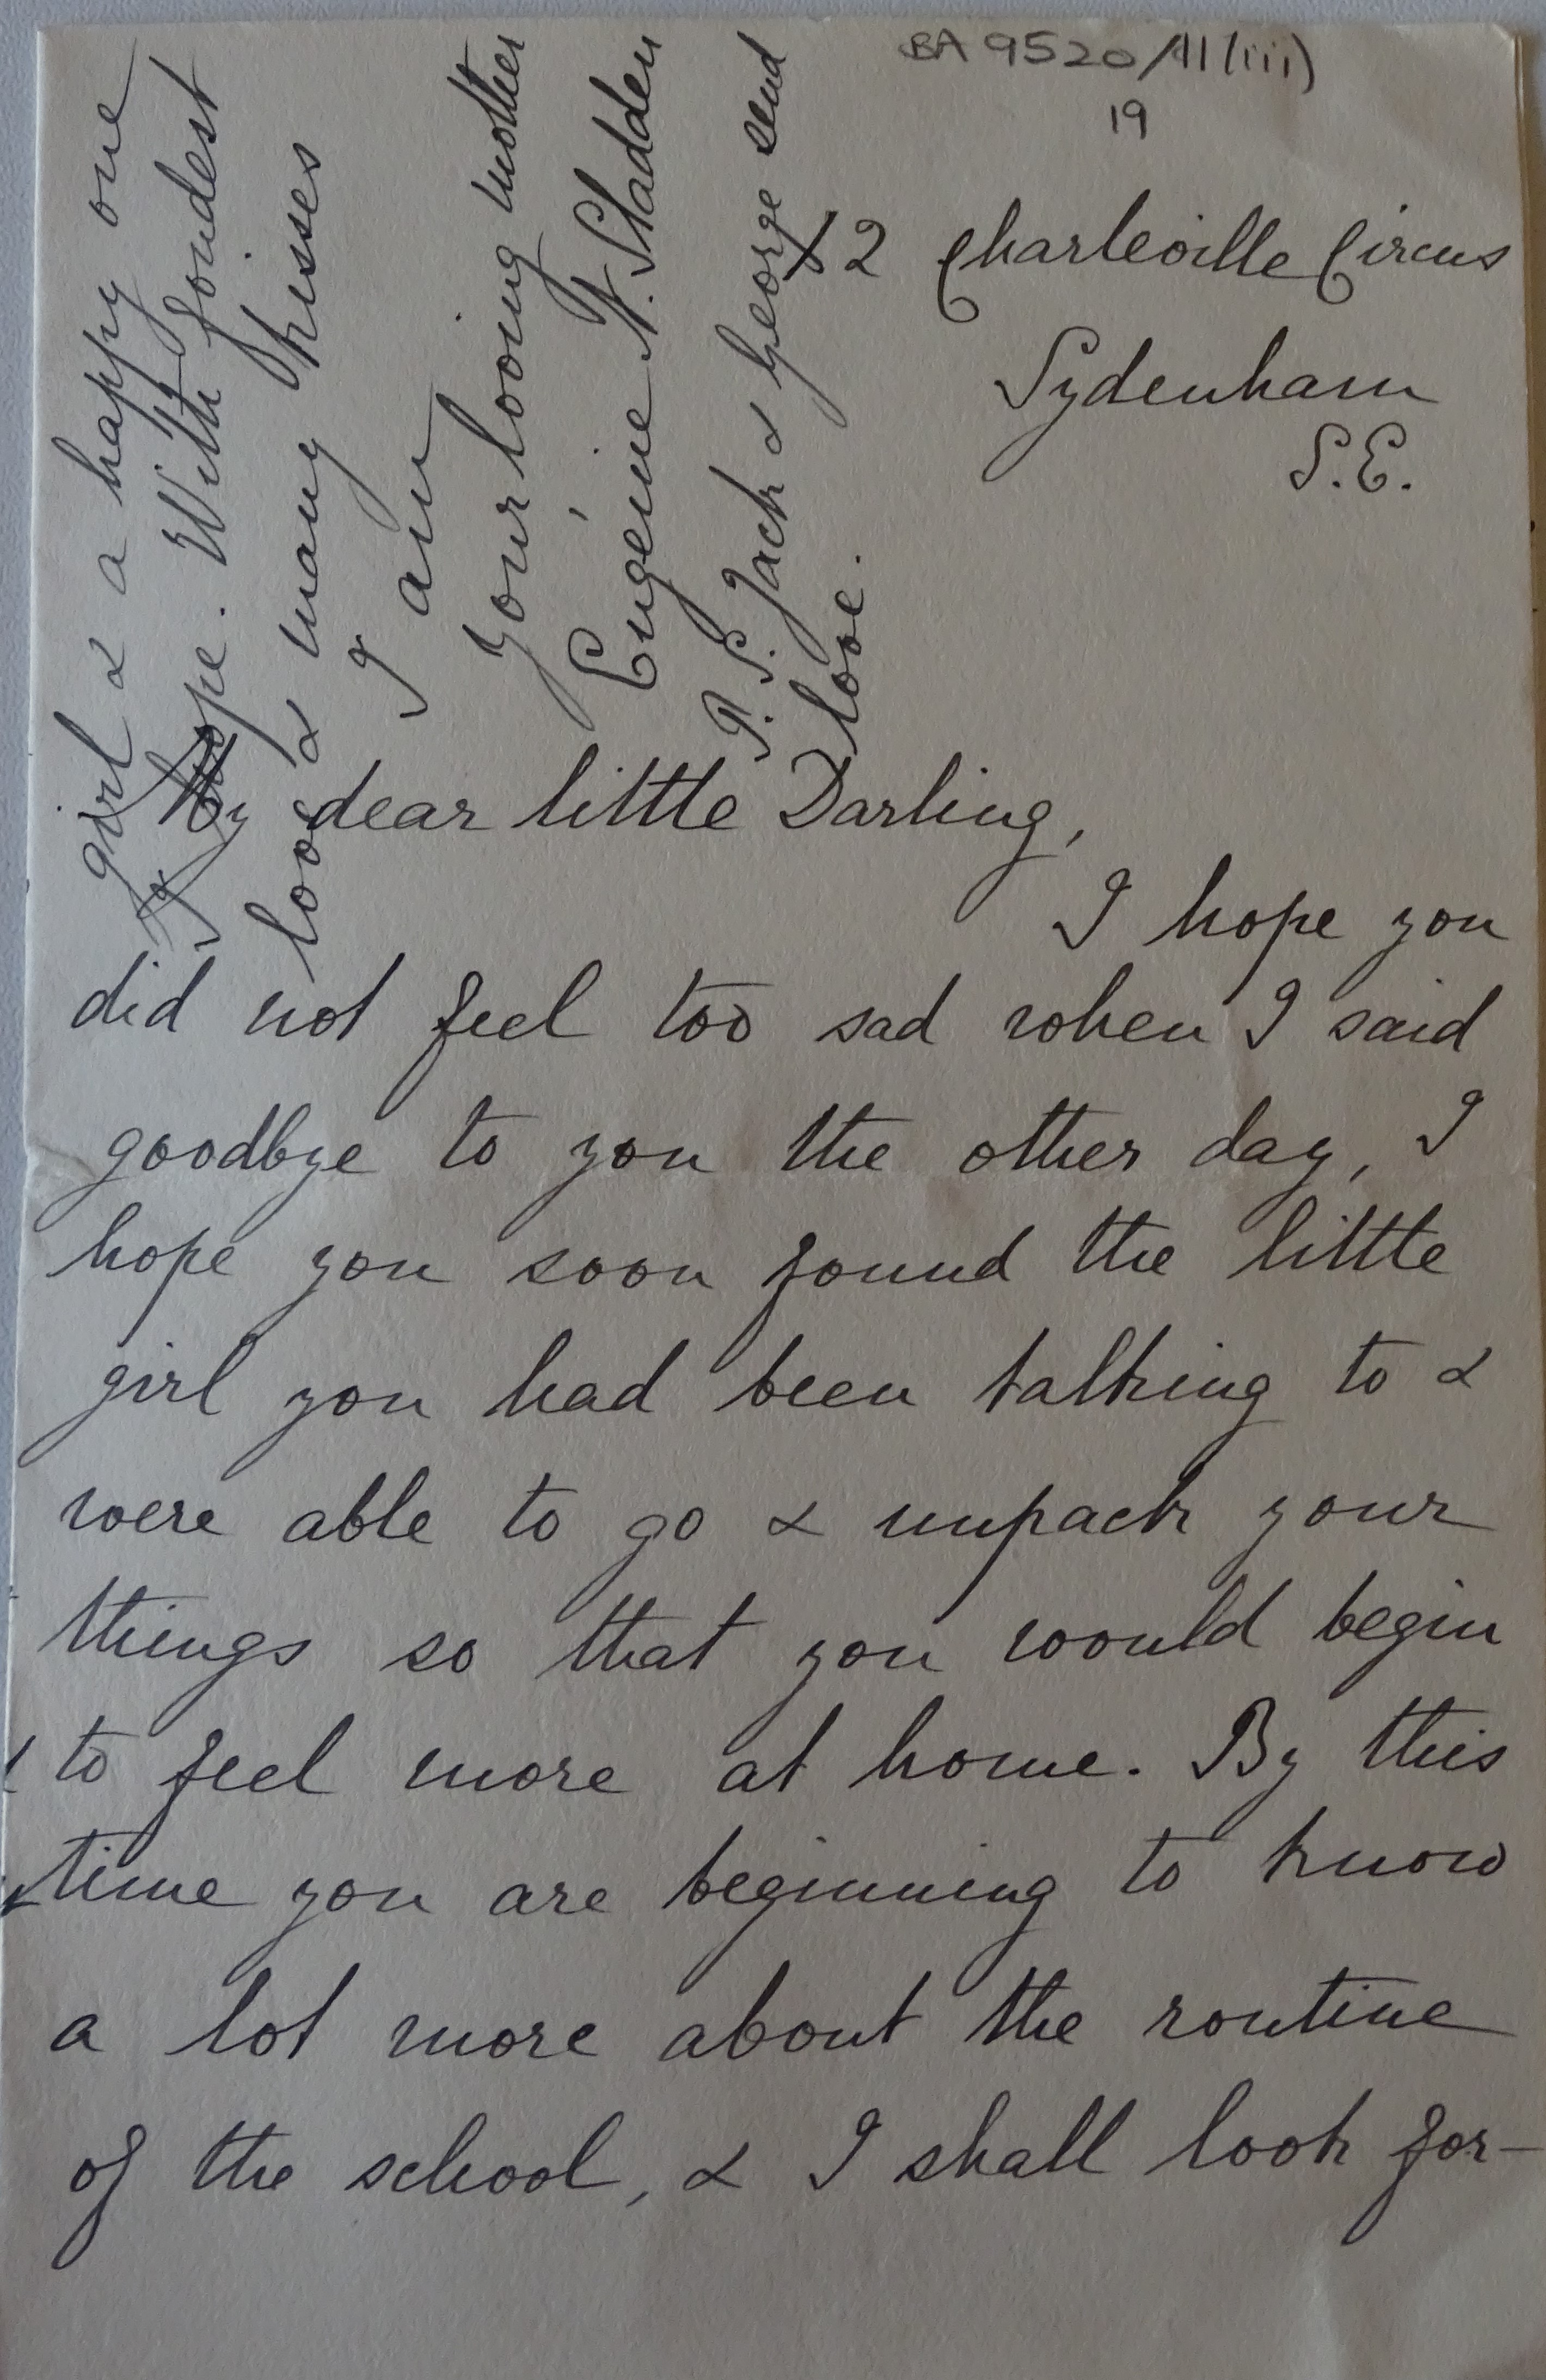 BA 9520/11(iii)
19
12 Charleville Circus
Sydenham
S.E.
My dear little Darling,
I hope you
did not feel too sad when I said
goodbye to you the other day, I
hope you soon found the little
girl you had been talking to &
were able to go & unpack your
things so that you would begin
to feel more at home. By this
time you are beginning to know
a lot more about the routine
of the school, & I shall look for-
girl & a happy one
I hope. With fondest
love & many kisses
I am
Your loving mother
Eugénie N. Sladden
P.S. Jack & George send
love.